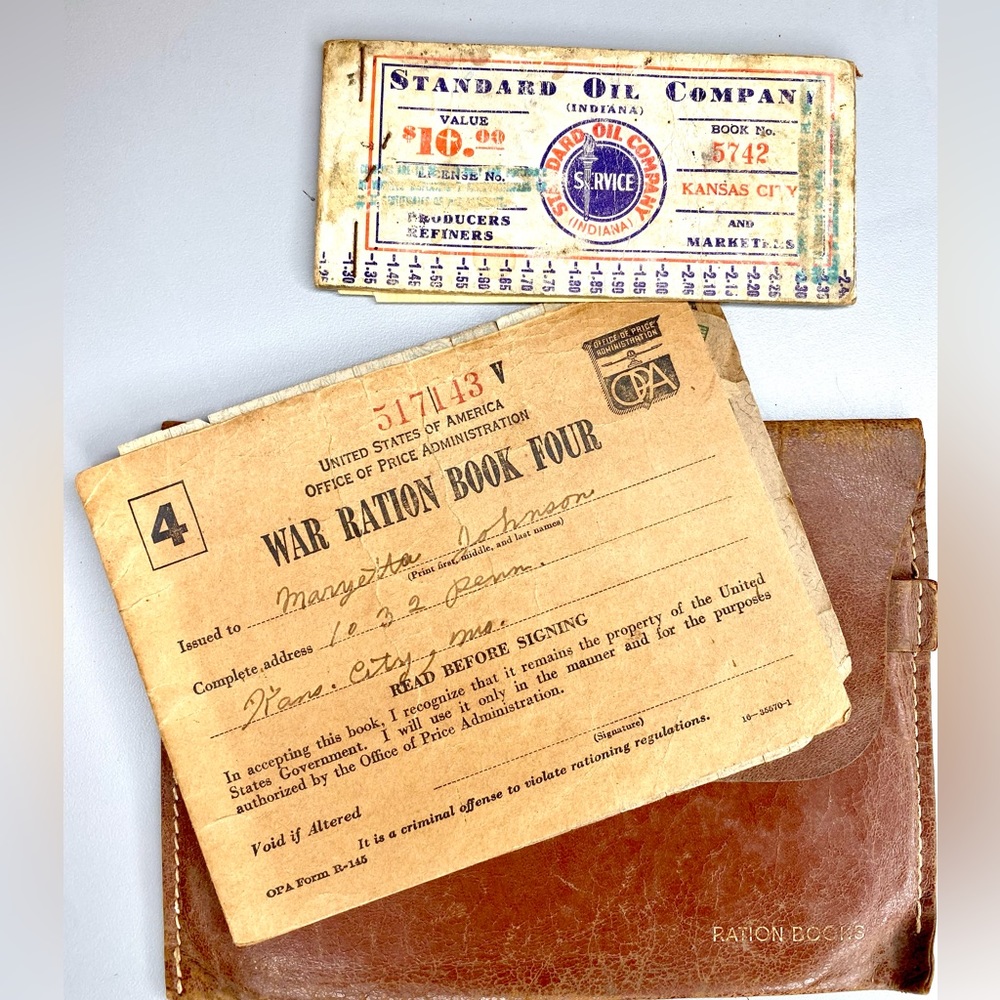 STANDARD OIL COMPANY
(INDIANA)
VALUE
$10.00
LICENSE No.
PRODUCERS
REFINERS
STANDARD OIL COMPANY
SERVICE
(INDIANA)
BOOK No.
5742
KANSAS CITY
AND
MARKETERS
-1.30 -1.35 -1.40 -1.45 -1.50 -1.55 -1.60 -1.65 -1.70 -1.75 -1.80 -1.85 -1.90 -1.95 -2.00 -2.05 -2.10 -2.15 -2.20 -2.25 -2.30 -2.35
OFFICE OF PRICE
ADMINISTRATION
OPA
517143 V
UNITED STATES OF AMERICA
OFFICE OF PRICE ADMINISTRATION
4
WAR RATION BOOK FOUR
Issued to Maryetta Johnson
(Print first, middle, and last names)
Complete address 1032 Penn.
Kans. City, Mo.
READ BEFORE SIGNING
In accepting this book, I recognize that it remains the property of the United
States Government. I will use it only in the manner and for the purposes
authorized by the Office of Price Administration.
(Signature)
Void if Altered
It is a criminal offense to violate rationing regulations.
OPA Form R-145
16-35570-1
RATION BOOKS